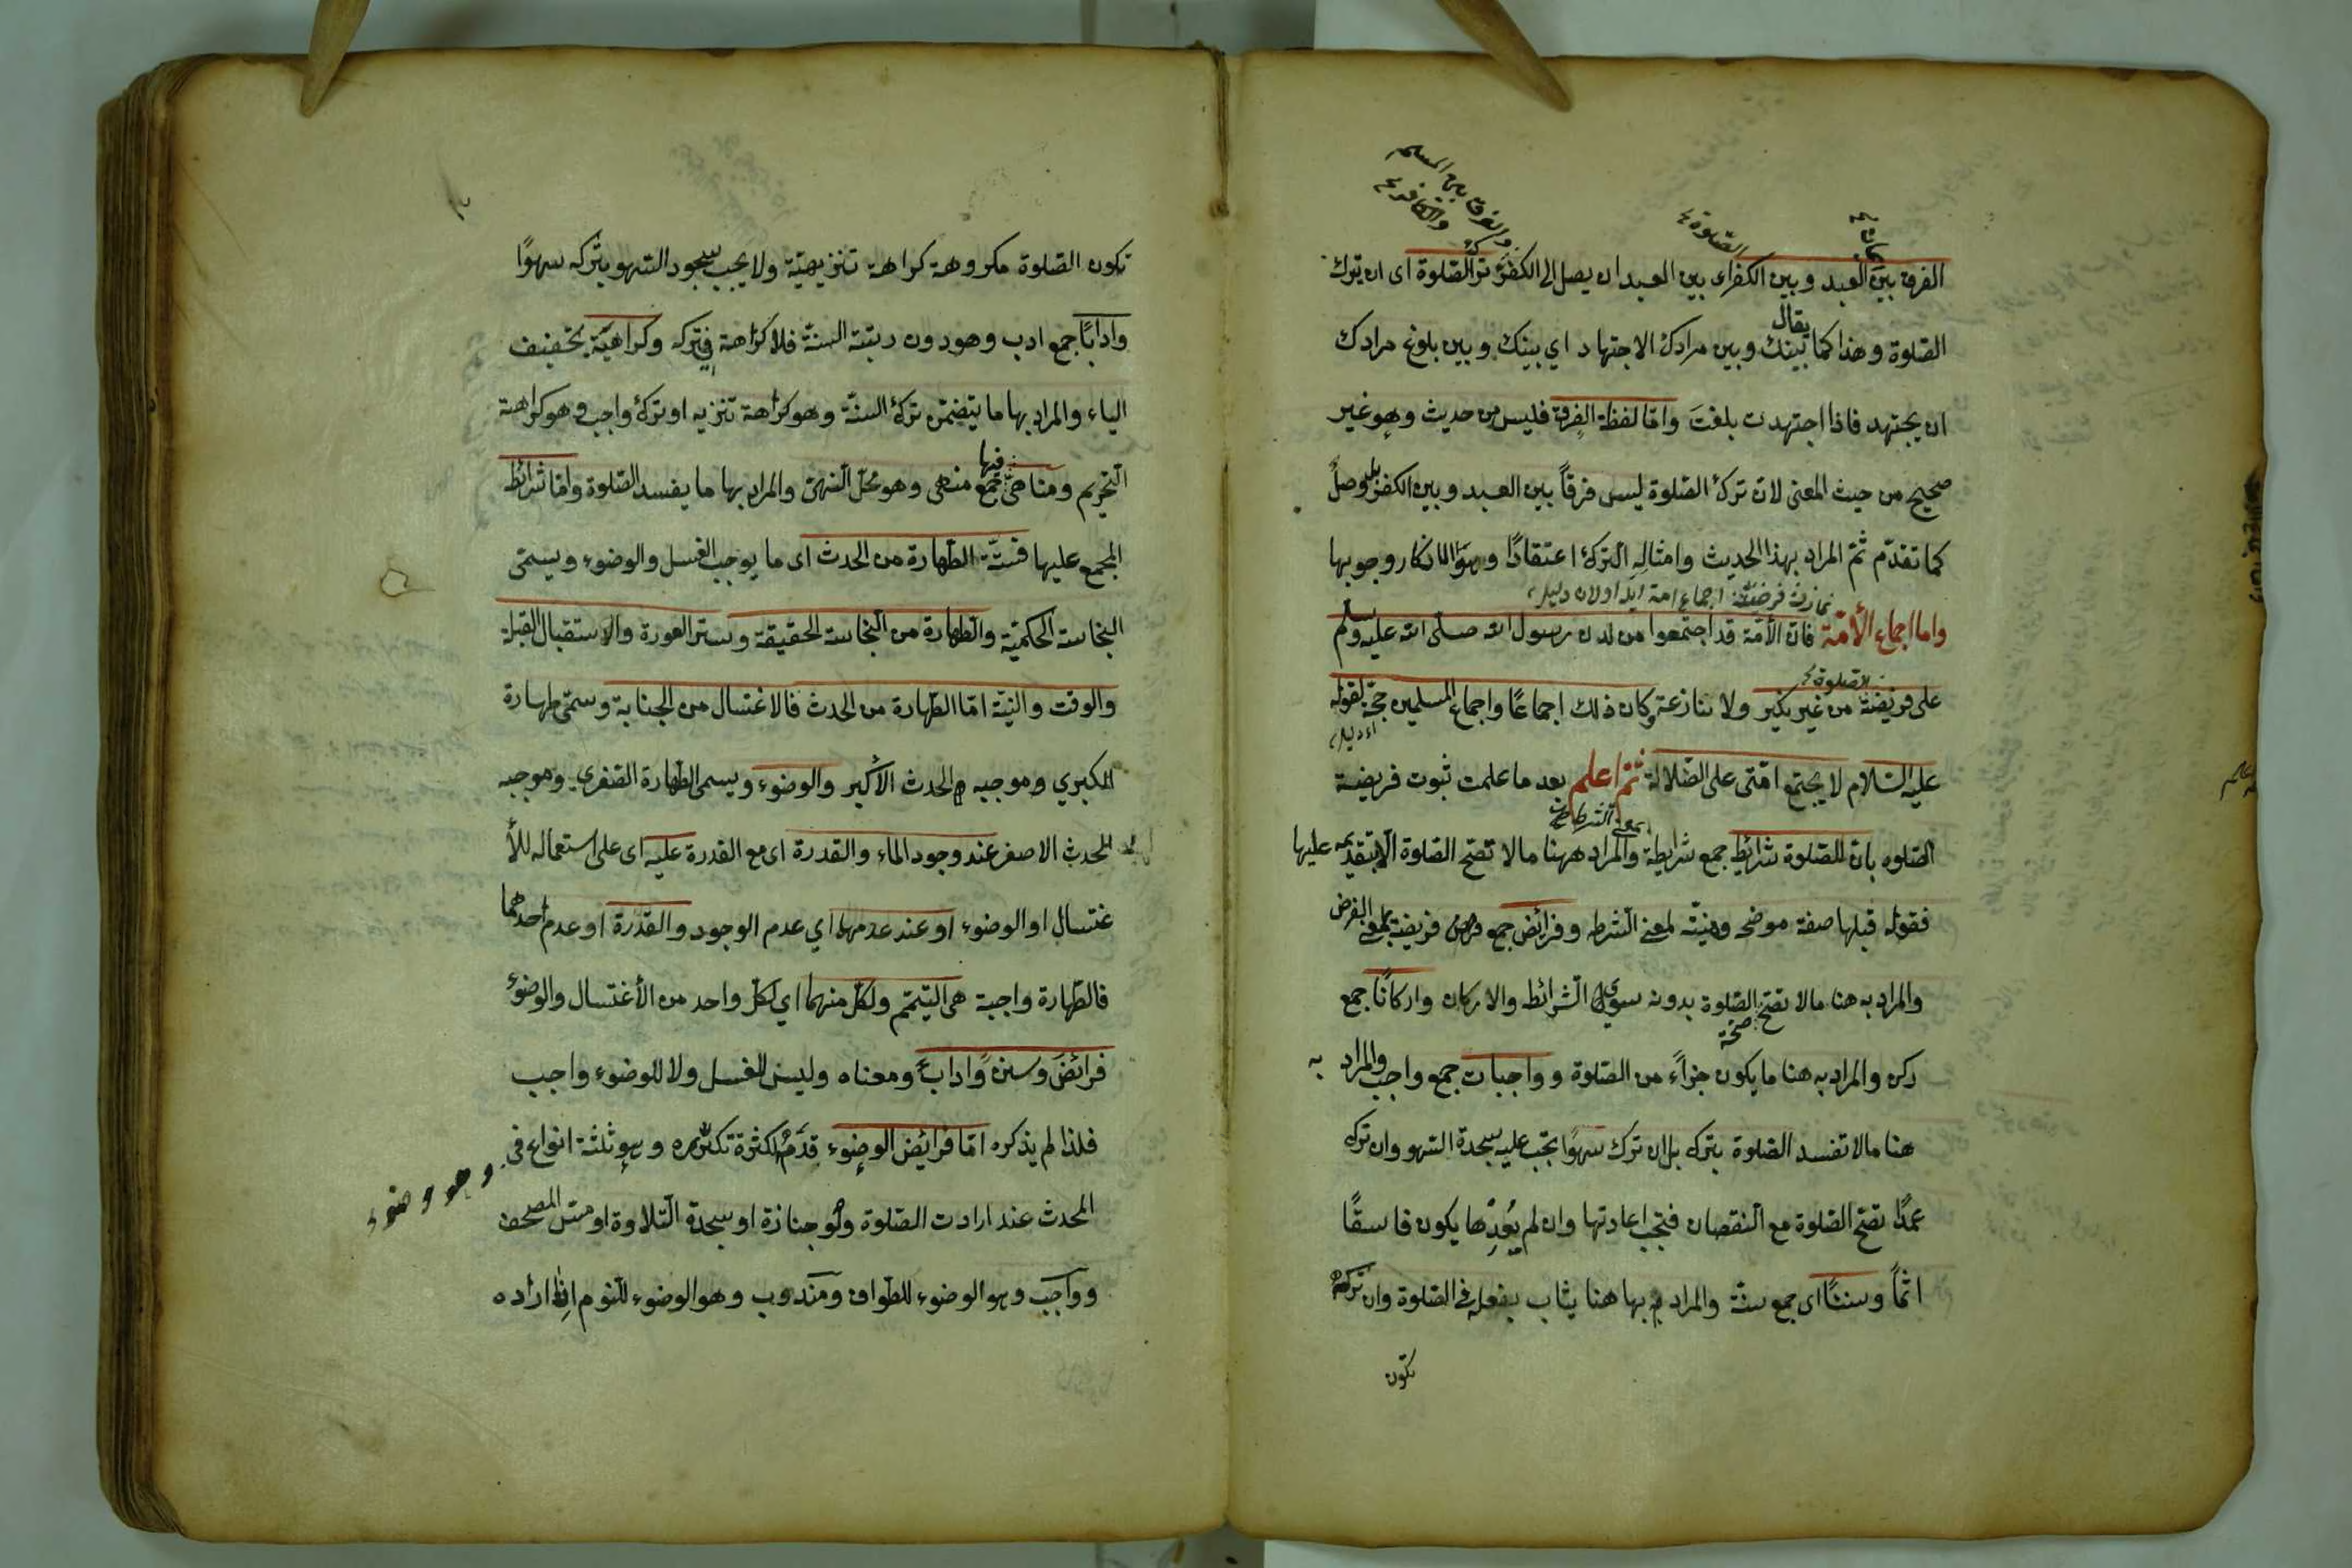 والفرق بين المسلم
والكافر
الصلوة
الفرق بين العبد وبين الكفر اى بين العبد ان يصل الى الكفر ترك الصلوة اى ان يترك
الصلوة وهذا كما يقال بينك وبين مرادك الاجتهاد اي بينك وبين بلوغ مرادك
ان يجتهد فاذا اجتهدت بلغت واما لفظة الفرق فليس من حديث وهو غير
صحيح من حيث المعنى لان ترك الصلوة ليس فرقاً بين العبد وبين الكفر بل وصل
كما تقدّم ثمّ المراد بهذا الحديث وامثاله الترك اعتقادًا وهو الانكار وجوبها
واما اجماع الأمّة فان الأمّة قد اجتمعوا من لدن رسول الله صلى الله عليه وسلم
الصلوة
على فريضة من غير نكير ولا منازعة وكان ذلك اجماعًا واجماع المسلمين حجة لقوله
عليه السّلام لا يجتمع امّتى على الضّلالة ثمّ اعلم بعد ما علمت ثبوت فريضية
الصلوه بان للصّلوة شرائط جمع شرايطة والمراد ههنا ما لا تصّح الصلوة الّا بتقديمه عليها
فقوله قبلها صفة موضحه لمعنى الشرط وفرائض جمع فريضة بمعنى الفرض
والمراد به هنا ما لا تصّح الصّلوة بدونه سوى الشرائط والاركان واركانًا جمع
ركن والمراد به هنا ما يكون جزأً من الصّلوة وواجبات جمع واجب والمراد به
هنا ما لا تفسد الصّلوة بتركه بل ان ترك سهوًا تجب عليه سجدة السّهو وان تركه
عمدًا تصّح الصّلوة مع النقصان فتجب اعادتها وان لم يُعِدْها يكون فاسقًا
اثمًا وسننًا اى جمع سنّة والمراد بها هنا يثاب بفعله فى الصّلوة وان تركه
تكون
تكون الصّلوة مكروهة كراهة تنزيهيّة ولا يجب سجود السّهو بتركه سهوًا
وادابًا جمع ادب وهو دون رتبة السنّة فلا كراهة في تركه وكراهيّة بتخفيف
الياء والمراد بها ما يتضمّن ترك السنّة وهو كراهة تنزيه او ترك واجب وهو كراهة
التحريم ومناهى فيها جمع منهى وهو محلّ النهى والمراد بها ما يفسد الصّلوة وامّا شرائط
المجمع عليها فستّة الطّهارة من الحدث اى ما يوجب الغسل والوضوء ويسمّى
النجاسة الحكميّة والطهارة من النّجاسة الحقيقة وستر العورة والاستقبال القبلة
والوقت والنيّة امّا الطّهارة من الحدث فالاغتسال من الجنابة وسمّى طهارة
الكبري وموجبه الحدث الأكبر والوضوء ويسمى الطهارة الصّغرى وموجبه
الحدث الاصغر عند وجود الماء والقدرة اى مع القدرة عليه اى على استعماله للأ
غتسال او الوضوء او عند عدمهما اي عدم الوجود والقدرة او عدم احدهما
فالطّهارة واجبة هى التّيمّم ولكلّ منهما اي لكلّ واحد من الأغتسال والوضوء
فرائضَ وسننًا واداباً ومعناه وليس للغسل ولا للوضوء واجب
فلذا لم يذكره امّا فرائض الوضوء قدّم لكثرة تكرّره وهو ثلثة انواع فى
المحدث عند ارادت الصّلوة ولو جنازة او سجدة التّلاوة او مسّ المصحف
وواجب وهو الوضوء للطّواف ومندوب وهو الوضوء للنّوم اذا اراده